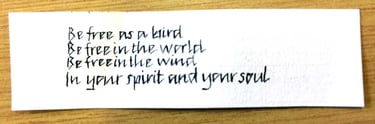 Be free as a bird
Be free in the world
Be free in the wind
In your spirit and your soul